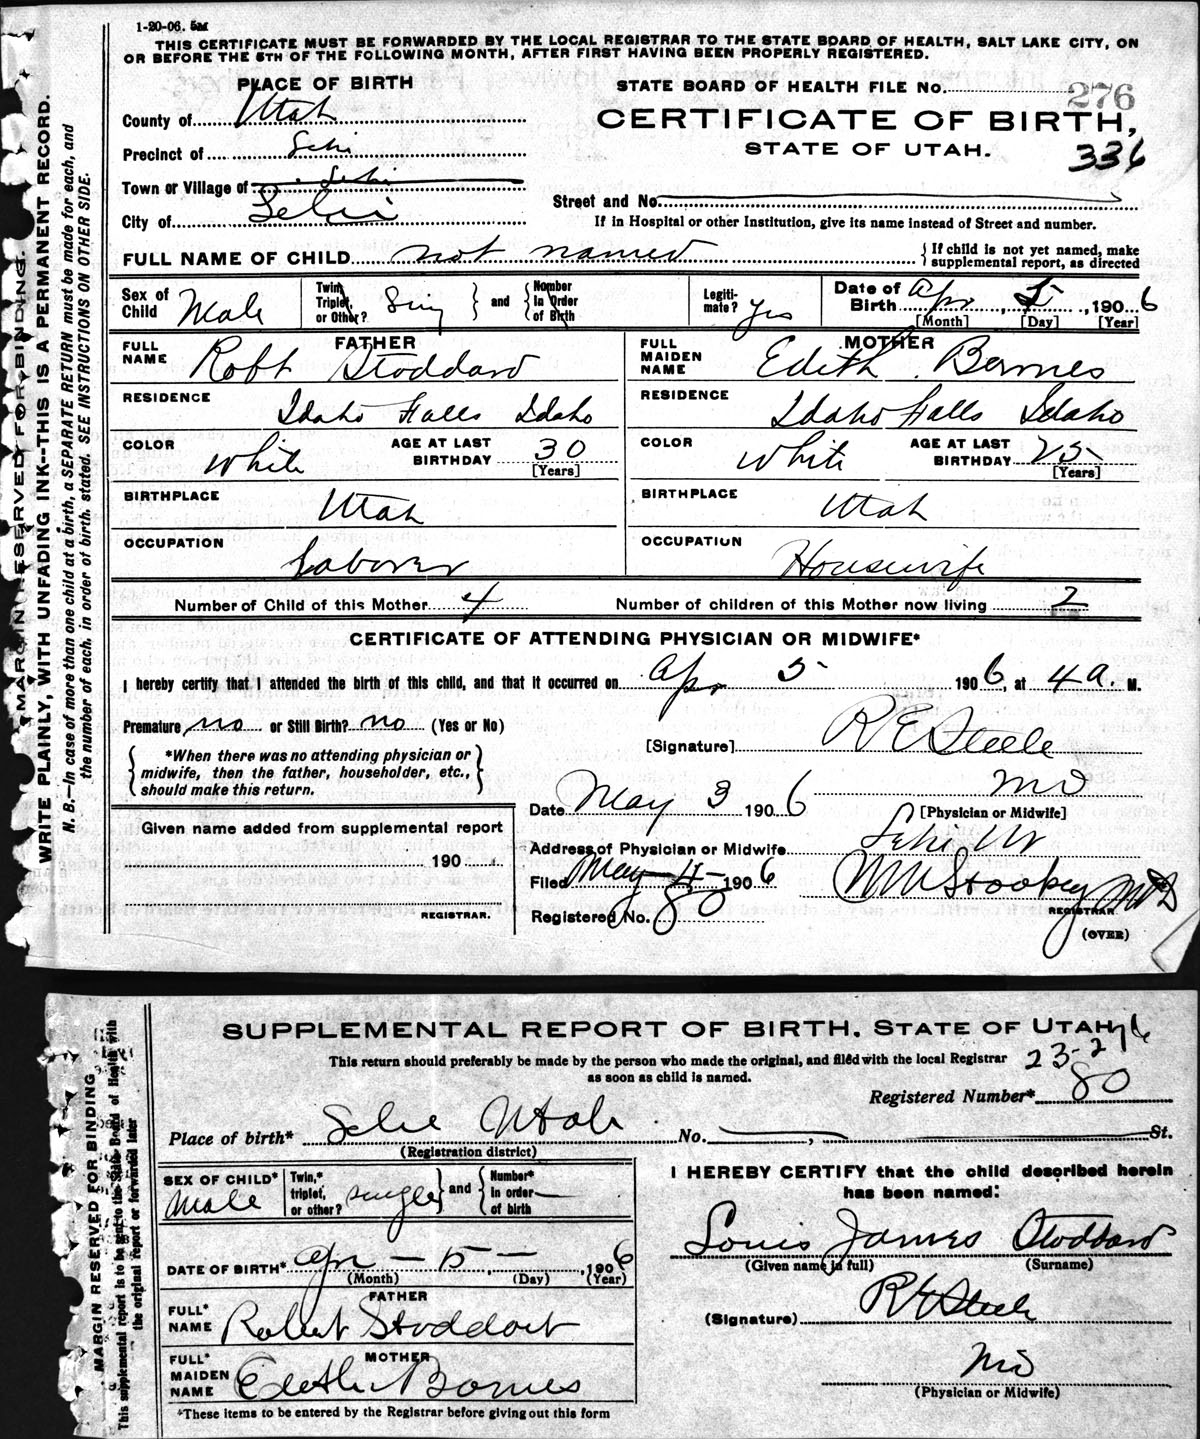 1-20-06. 5M
THIS CERTIFICATE MUST BE FORWARDED BY THE LOCAL REGISTRAR TO THE STATE BOARD OF HEALTH, SALT LAKE CITY, ON
OR BEFORE THE 5TH OF THE FOLLOWING MONTH, AFTER FIRST HAVING BEEN PROPERLY REGISTERED.
PLACE OF BIRTH
STATE BOARD OF HEALTH FILE No. 276
County of Utah
CERTIFICATE OF BIRTH,
STATE OF UTAH.
336
Precinct of Lehi
Town or Village of Lehi
City of Lehi
Street and No.
If in Hospital or other Institution, give its name instead of Street and number.
FULL NAME OF CHILD not named
{ If child is not yet named, make supplemental report, as directed
Sex of Child Male
Twin, Triplet, or Other? Sing } and { Number In Order of Birth
Legitimate? yes
Date of Birth Apr 5, 1906
[Month] [Day] [Year]
FATHER
FULL NAME Robt Stoddard
RESIDENCE Idaho Falls Idaho
COLOR White AGE AT LAST BIRTHDAY 30 [Years]
BIRTHPLACE Utah
OCCUPATION Laborer
MOTHER
FULL MAIDEN NAME Edith Barnes
RESIDENCE Idaho Falls Idaho
COLOR White AGE AT LAST BIRTHDAY 25 [Years]
BIRTHPLACE Utah
OCCUPATION Housewife
Number of Child of this Mother 4 Number of children of this Mother now living 2
CERTIFICATE OF ATTENDING PHYSICIAN OR MIDWIFE*
I hereby certify that I attended the birth of this child, and that it occurred on Apr 5 1906, at 4 a. M.
Premature no or Still Birth? no (Yes or No)
{ *When there was no attending physician or midwife, then the father, householder, etc., should make this return. }
[Signature] R E Steele
MD
[Physician or Midwife]
Date May 3 1906
Given name added from supplemental report
190
REGISTRAR.
Address of Physician or Midwife Lehi Ut
Filed May 4 1906
Registered No. 80
Stookey MD
REGISTRAR
(OVER)
MARGIN RESERVED FOR BINDING.
WRITE PLAINLY, WITH UNFADING INK--THIS IS A PERMANENT RECORD.
N. B.—In case of more than one child at a birth, a SEPARATE RETURN must be made for each, and
the number of each, in order of birth, stated. SEE INSTRUCTIONS ON OTHER SIDE.
SUPPLEMENTAL REPORT OF BIRTH. STATE OF UTAH
This return should preferably be made by the person who made the original, and filed with the local Registrar
as soon as child is named.
23-276
Registered Number* 80
Place of birth* Lehi Utah No. , St.
(Registration district)
SEX OF CHILD* Male
Twin,* triplet, or other? single } and { Number* In order of birth
DATE OF BIRTH* Apr - 5 - , 1906
(Month) (Day) (Year)
FATHER
FULL* NAME Robert Stoddart
MOTHER
FULL* MAIDEN NAME Edith Barnes
*These items to be entered by the Registrar before giving out this form
I HEREBY CERTIFY that the child described herein
has been named:
Louis James Stoddard
(Given name in full) (Surname)
(Signature) R E Steele
MD
(Physician or Midwife)
MARGIN RESERVED FOR BINDING
This supplemental report is to be sent to the State Board of Health with
the original report or forwarded later